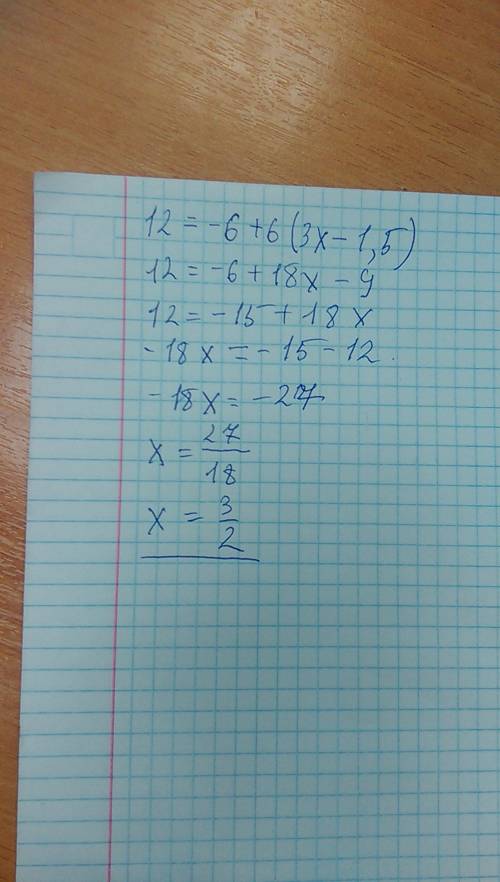 12 = -6 + 6 (3x - 1,5)
12 = -6 + 18x - 9
12 = -15 + 18x
-18x = -15 - 12.
-18x = -27
x = 27/18
x = 3/2